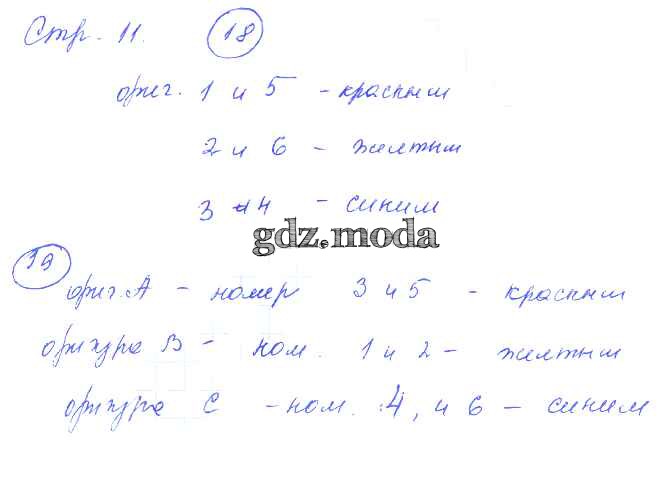 Стр. 11. 18
фиг. 1 и 5 - красным
2 и 6 - желтым
3 и 4 - синим
gdz.moda
19
фиг. А - номер 3 и 5 - красным
фигура В - ном. 1 и 2 - желтым
фигура С - ном. 4, и 6 - синим